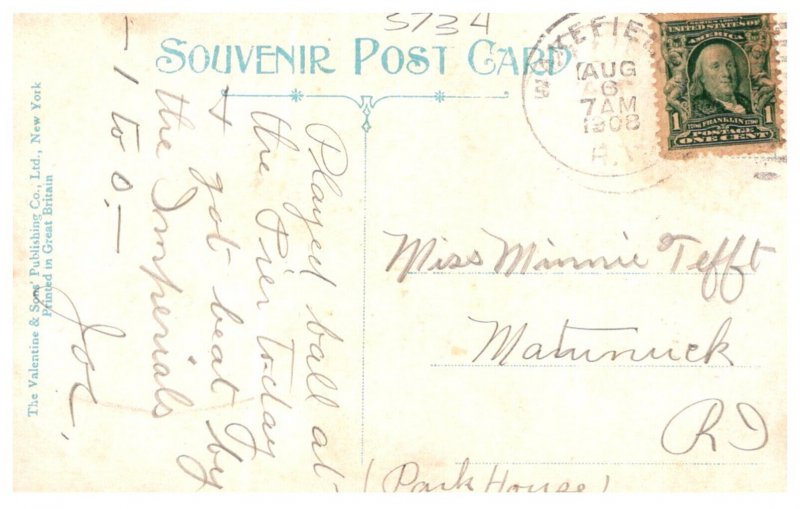 5734
SOUVENIR POST CARD
WAKEFIEL
AUG
6
7 AM
1908
R.I.
SERIES 1902
UNITED STATES OF
AMERICA
1 FRANKLIN 1
POSTAGE
ONE CENT
Played ball at
the Pier today
+ got beat by
the Imperials
– 1 to 0. –
Joe.
The Valentine & Sons' Publishing Co., Ltd., New York
Printed in Great Britain
Miss Minnie Tefft
Matunuck
RI
(Park House)